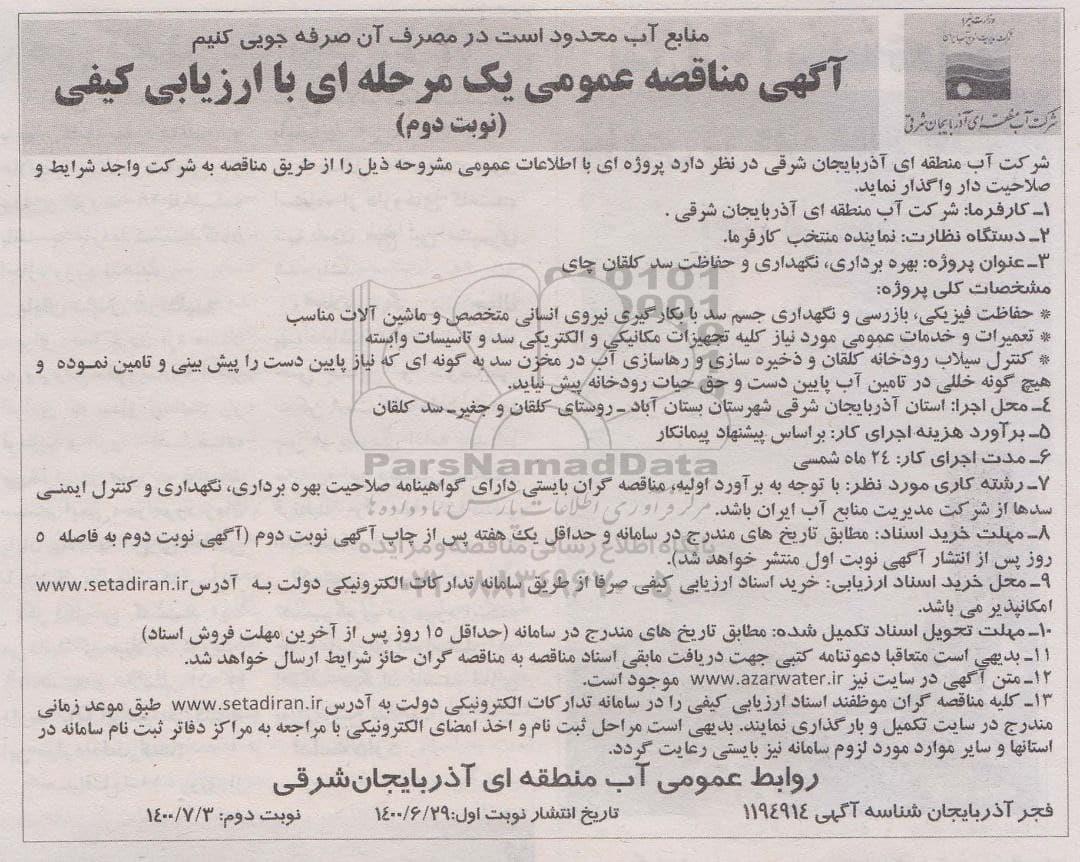 وزارت نیرو
شرکت مدیریت منابع آب ایران
شرکت آب منطقه ای آذربایجان شرقی
منابع آب محدود است در مصرف آن صرفه جویی کنیم
آگهی مناقصه عمومی یک مرحله ای با ارزیابی کیفی
(نوبت دوم)
شرکت آب منطقه ای آذربایجان شرقی در نظر دارد پروژه ای با اطلاعات عمومی مشروحه ذیل را از طریق مناقصه به شرکت واجد شرایط و
صلاحیت دار واگذار نماید.
۱ـ کارفرما: شرکت آب منطقه ای آذربایجان شرقی .
۲ـ دستگاه نظارت: نماینده منتخب کارفرما.
۳ـ عنوان پروژه: بهره برداری، نگهداری و حفاظت سد کلقان چای
مشخصات کلی پروژه:
* حفاظت فیزیکی، بازرسی و نگهداری جسم سد با بکارگیری نیروی انسانی متخصص و ماشین آلات مناسب
* تعمیرات و خدمات عمومی مورد نیاز کلیه تجهیزات مکانیکی و الکتریکی سد و تاسیسات وابسته
* کنترل سیلاب رودخانه کلقان و ذخیره سازی و رهاسازی آب در مخزن سد به گونه ای که نیاز پایین دست را پیش بینی و تامین نموده و
هیچ گونه خللی در تامین آب پایین دست و حق حیات رودخانه پیش نیاید.
۴ـ محل اجرا: استان آذربایجان شرقی شهرستان بستان آباد ـ روستای کلقان و جغیر ـ سد کلقان
۵ـ برآورد هزینه اجرای کار: براساس پیشنهاد پیمانکار
۶ـ مدت اجرای کار: ۲۴ ماه شمسی
ParsNamadData
۷ـ رشته کاری مورد نظر: با توجه به برآورد اولیه، مناقصه گران بایستی دارای گواهینامه صلاحیت بهره برداری، نگهداری و کنترل ایمنی
سدها از شرکت مدیریت منابع آب ایران باشد.
مرکز فرآوری اطلاعات پارس نماد داده ها
۸ـ مهلت خرید اسناد: مطابق تاریخ های مندرج در سامانه و حداقل یک هفته پس از چاپ آگهی نوبت دوم (آگهی نوبت دوم به فاصله ۵
روز پس از انتشار آگهی نوبت اول منتشر خواهد شد).
پایگاه اطلاع رسانی مناقصه و مزایده
۹ـ محل خرید اسناد ارزیابی: خرید اسناد ارزیابی کیفی صرفا از طریق سامانه تدارکات الکترونیکی دولت به آدرس www.setadiran.ir
امکانپذیر می باشد.
۰۲۱-۸۸۳۴۹۶۷۰-۵
۱۰ـ مهلت تحویل اسناد تکمیل شده: مطابق تاریخ های مندرج در سامانه (حداقل ۱۵ روز پس از آخرین مهلت فروش اسناد)
۱۱ـ بدیهی است متعاقبا دعوتنامه کتبی جهت دریافت مابقی اسناد مناقصه به مناقصه گران حائز شرایط ارسال خواهد شد.
۱۲ـ متن آگهی در سایت نیز www.azarwater.ir موجود است.
۱۳ـ کلیه مناقصه گران موظفند اسناد ارزیابی کیفی را در سامانه تدارکات الکترونیکی دولت به آدرس www.setadiran.ir طبق موعد زمانی
مندرج در سایت تکمیل و بارگذاری نمایند. بدیهی است مراحل ثبت نام و اخذ امضای الکترونیکی با مراجعه به مراکز دفاتر ثبت نام سامانه در
استانها و سایر موارد مورد لزوم سامانه نیز بایستی رعایت گردد.
روابط عمومی آب منطقه ای آذربایجان شرقی
فجر آذربایجان شناسه آگهی ۱۱۹۴۹۱۴ تاریخ انتشار نوبت اول:۱۴۰۰/۶/۲۹ نوبت دوم: ۱۴۰۰/۷/۳